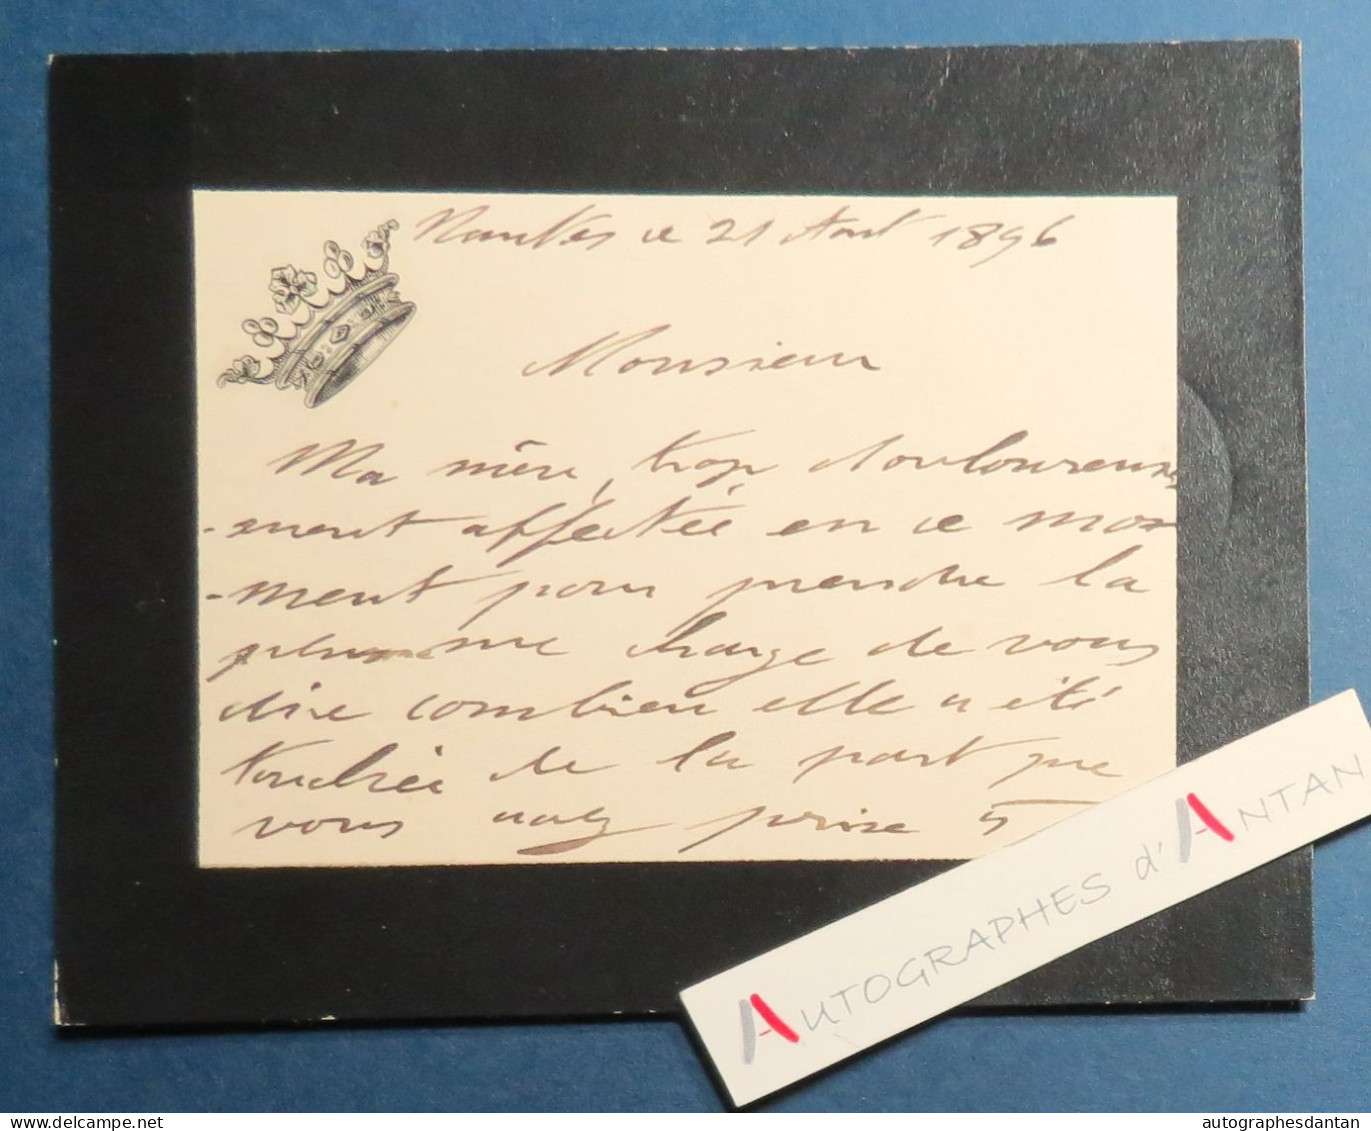 Nantes ce 21 Aout 1896
Monsieur
Ma mère, trop douloureuse
-ment affectée en ce mo
-ment pour prendre la
plume me charge de vous
dire combien elle a été
touchée de la part que
vous avez prise
AUTOGRAPHES d'ANTAN
www.delcampe.net
autographesdantan